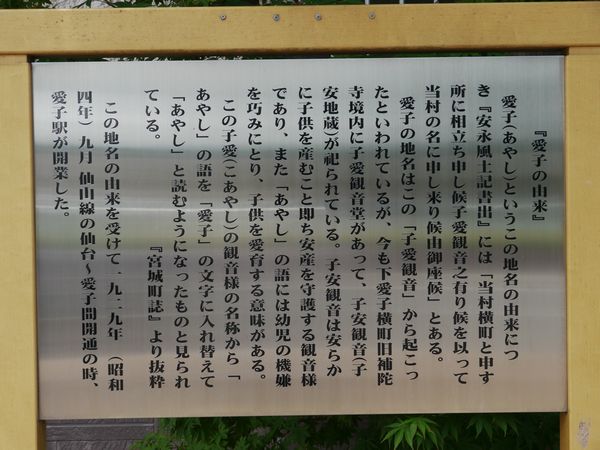 『愛子の由来』
愛子(あやし)というこの地名の由来につ
き『安永風土記書出』には「当村横町と申す
所に相立ち申し候子愛観音之有り候を以って
当村の名に申し来り候由御座候」とある。
愛子の地名はこの「子愛観音」から起こっ
たといわれているが、今も下愛子横町旧補陀
寺境内に子愛観音堂があって、子安観音(子
安地蔵)が祀られている。子安観音は安らか
に子供を産むこと即ち安産を守護する観音様
であり、また「あやし」の語には幼児の機嫌
を巧みにとり、子供を愛育する意味がある。
この子愛(こあやし)の観音様の名称から「
あやし」の語を「愛子」の文字に入れ替えて
「あやし」と読むようになったものと見られ
ている。
『宮城町誌』より抜粋
この地名の由来を受けて一九二九年（昭和
四年）九月 仙山線の仙台～愛子間開通の時、
愛子駅が開業した。